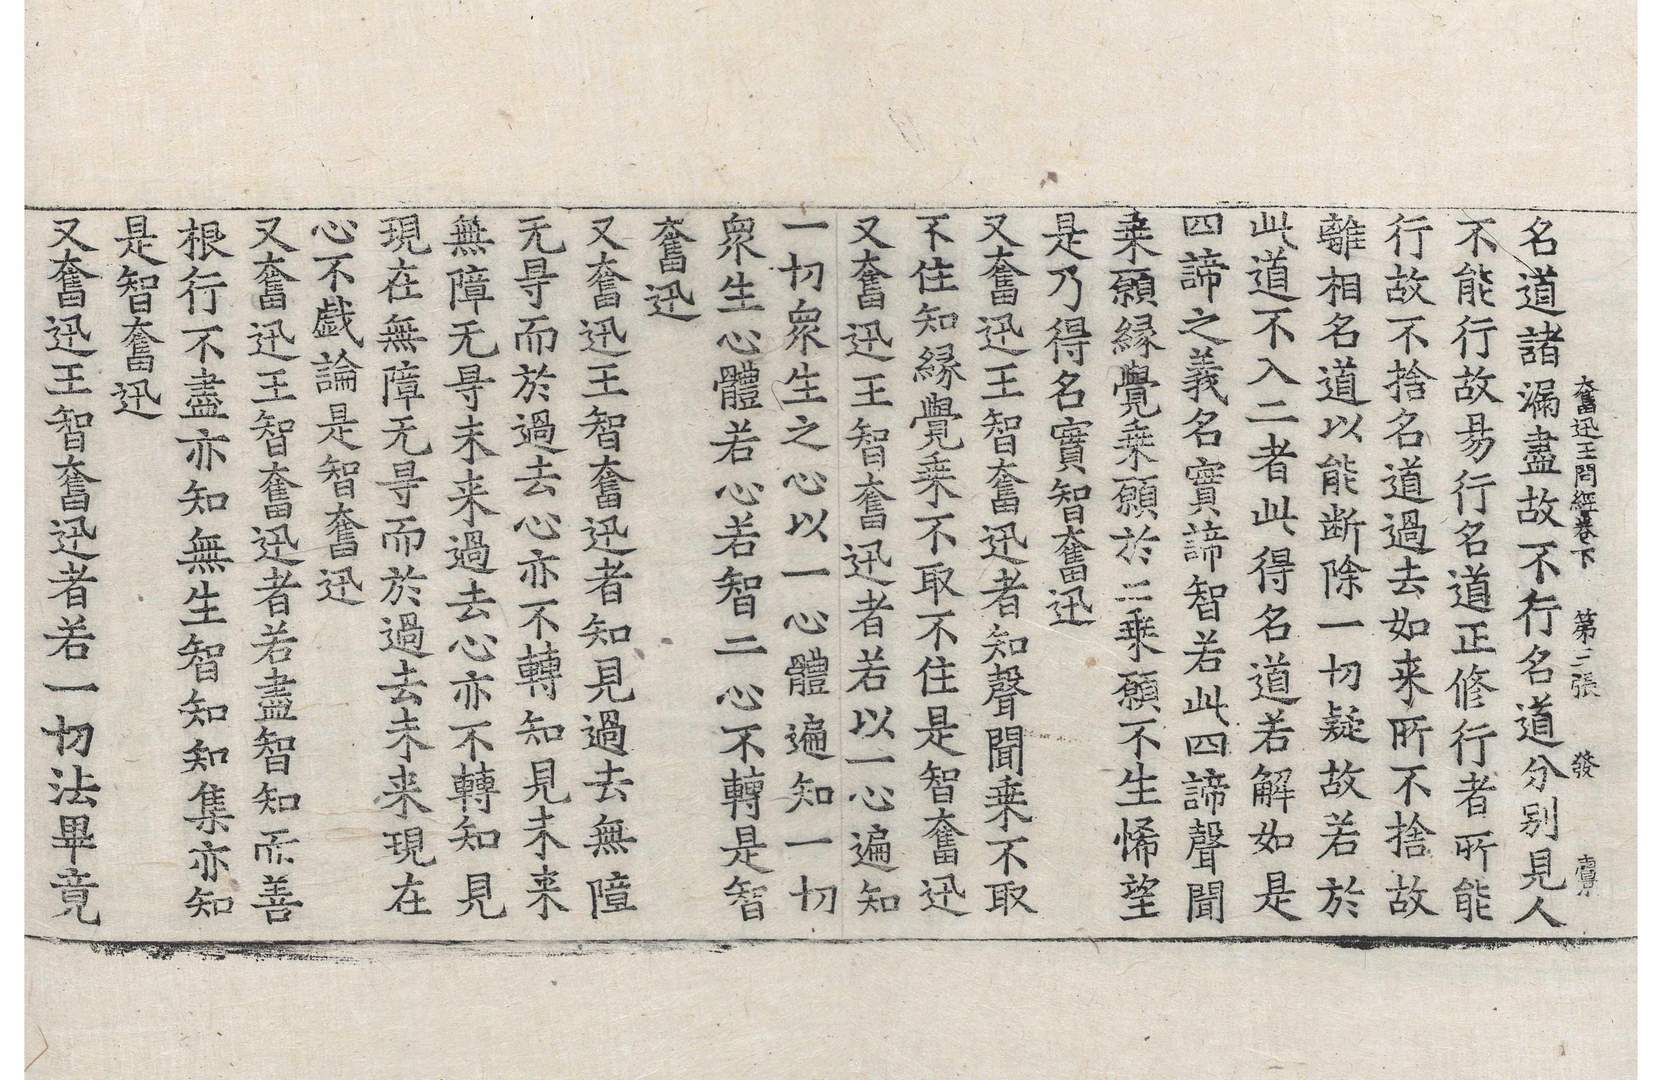 奮迅王問經卷下　第二張　發
名道諸漏盡故不行名道分别見人
不能行故易行名道正修行者所能
行故不捨名道過去如来所不捨故
離相名道以能断除一切疑故若於
此道不入二者此得名道若解如是
四諦之義名實諦智若此四諦聲聞
乗願縁覺乗願於二乗願不生悕望
是乃得名實智奮迅
又奮迅王智奮迅者知聲聞乗不取
不住知縁覺乗不取不住是智奮迅
又奮迅王智奮迅者若以一心遍知
一切衆生之心以一心體遍知一切
衆生心體若心若智二心不轉是智
奮迅
又奮迅王智奮迅者知見過去無障
无㝵而於過去心亦不轉知見未来
無障无㝵未来過去心亦不轉知見
現在無障无㝵而於過去未来現在
心不戱論是智奮迅
又奮迅王智奮迅者若盡智知而善
根行不盡亦知無生智知知集亦知
是智奮迅
又奮迅王智奮迅者若一切法畢竟